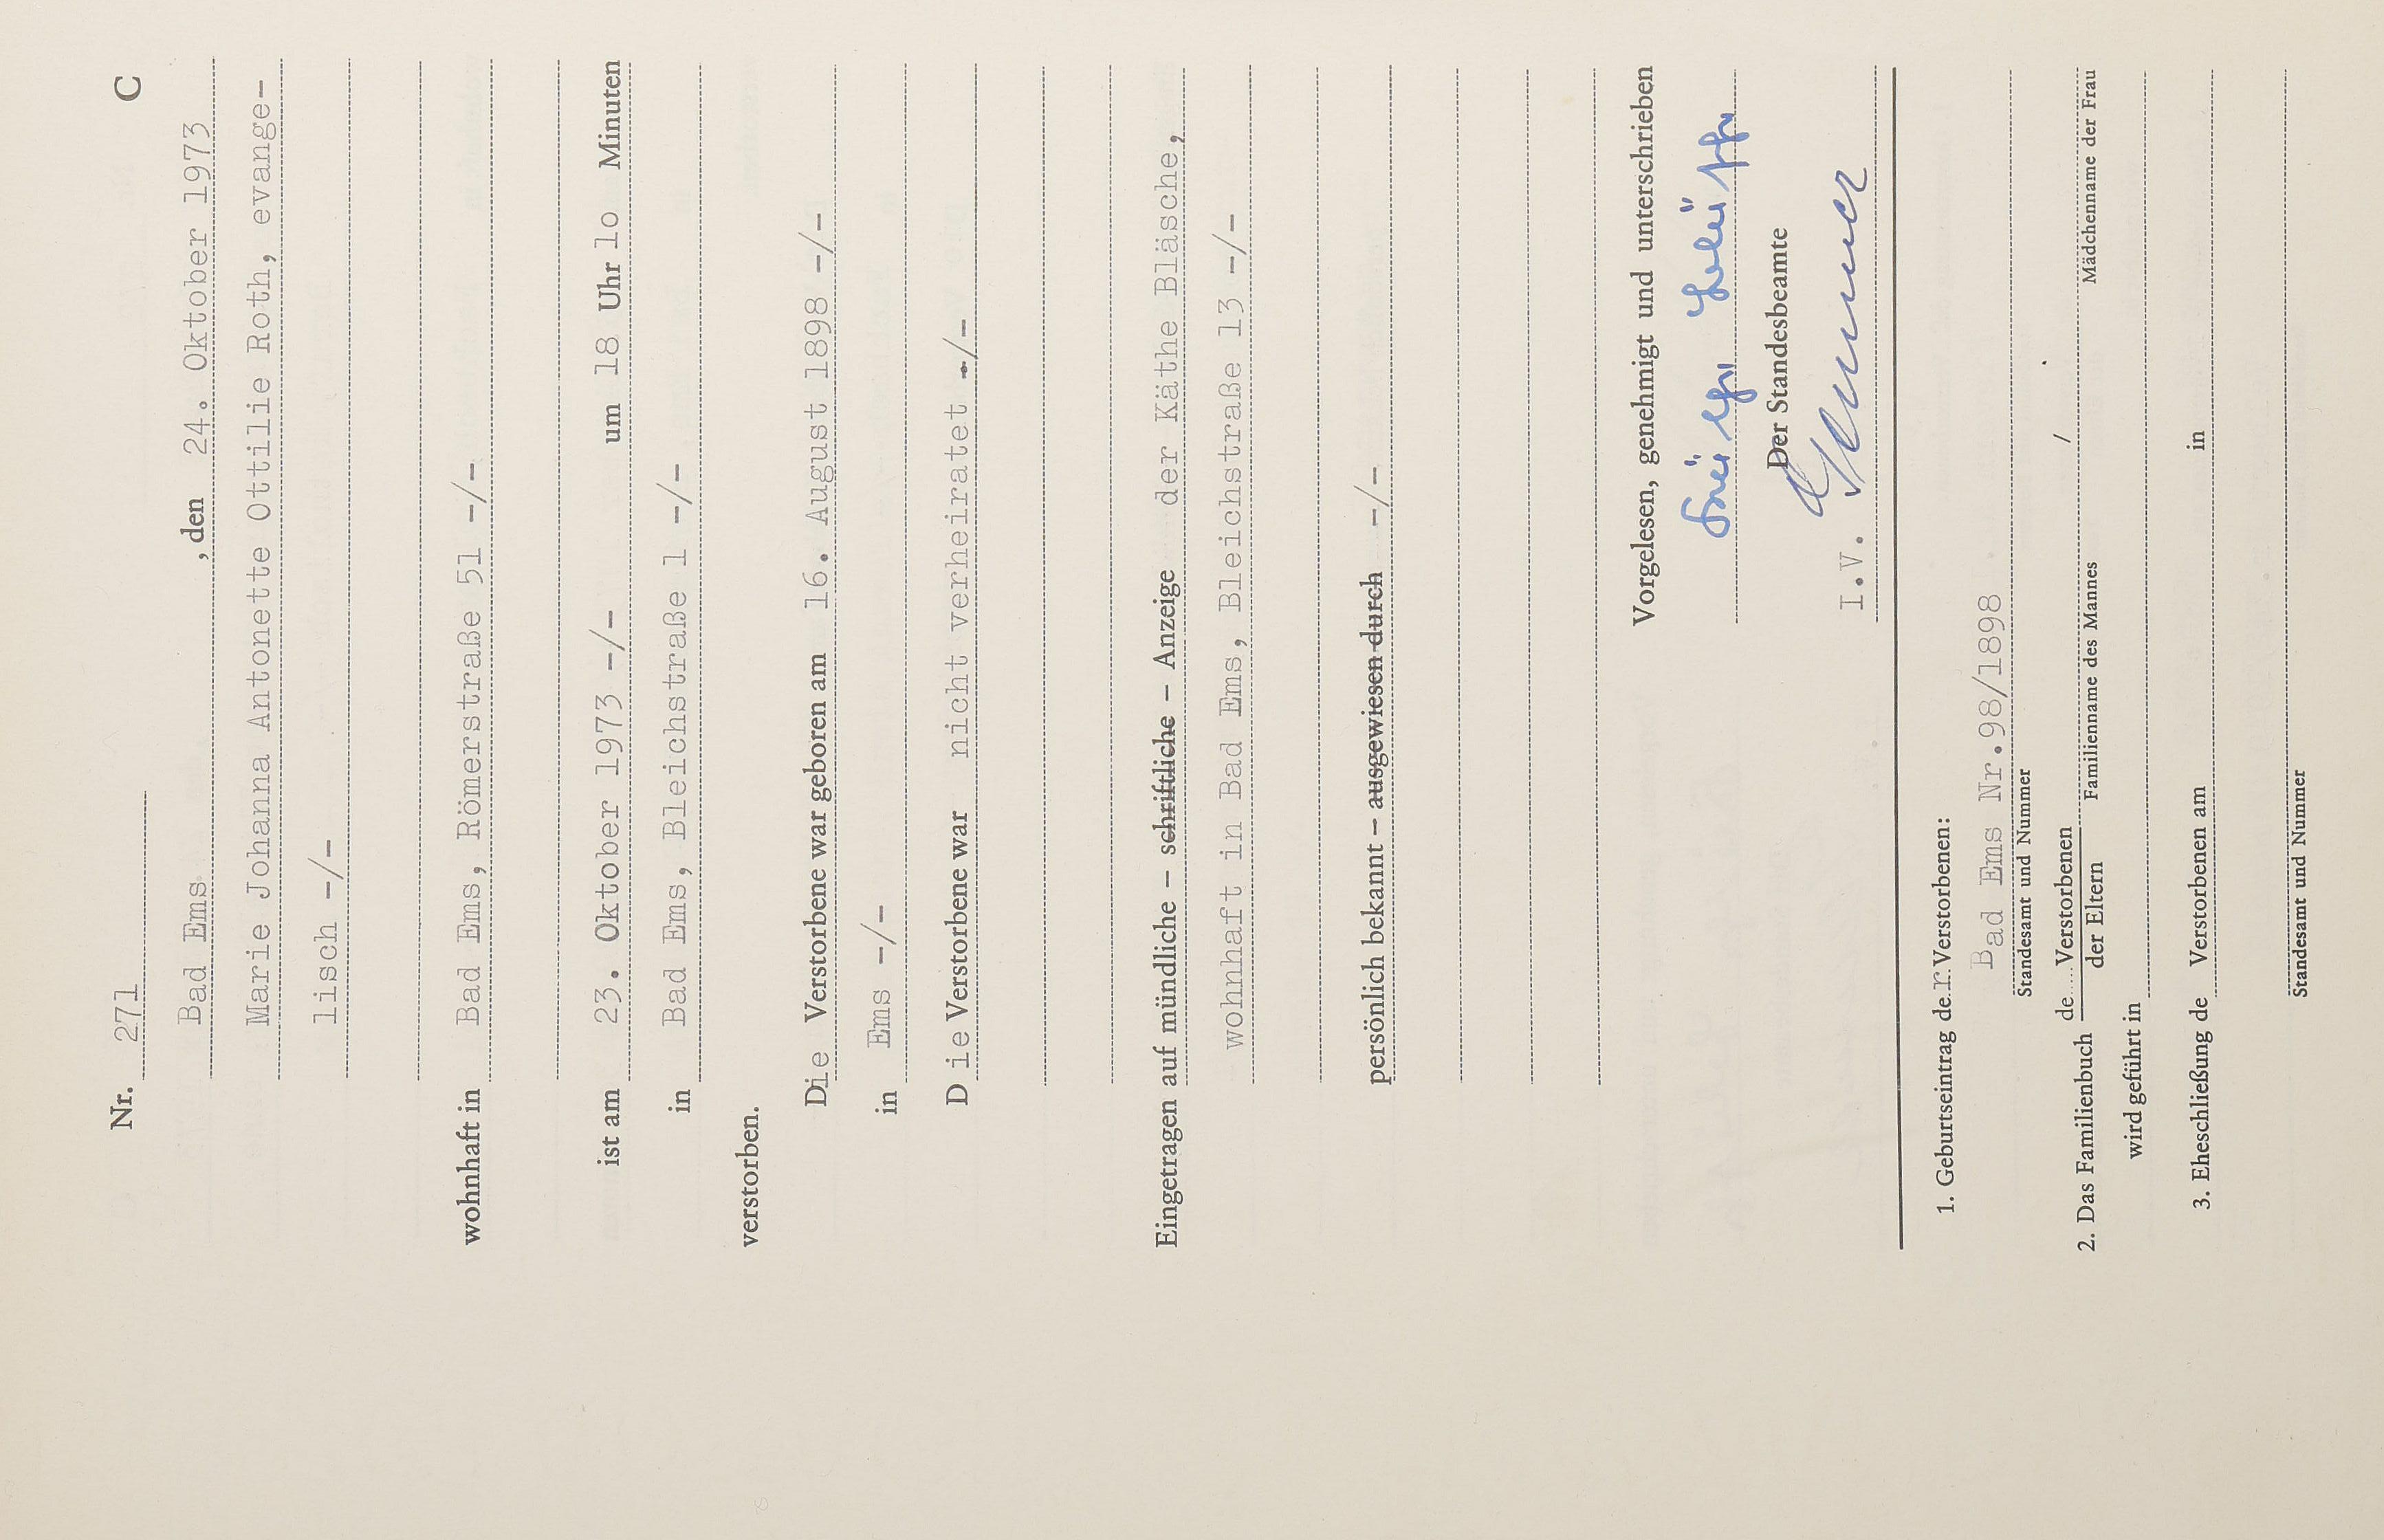 Nr. 271 C
Bad Ems , den 24. Oktober 1973
Marie Johanna Antonette Ottilie Roth, evange-
lisch -/-
wohnhaft in Bad Ems, Römerstraße 51 -/-
ist am 23. Oktober 1973 -/- um 18 Uhr 10 Minuten
in Bad Ems, Bleichstraße 1 -/-
verstorben.
Die Verstorbene war geboren am 16. August 1898 -/-
in Ems -/-
Die Verstorbene war nicht verheiratet -/-
Eingetragen auf mündliche – schriftliche – Anzeige der Käthe Bläsche,
wohnhaft in Bad Ems, Bleichstraße 13 -/-
persönlich bekannt – ausgewiesen durch -/-
Vorgelesen, genehmigt und unterschrieben
Der Standesbeamte
I.V.
1. Geburtseintrag der Verstorbenen:
Bad Ems Nr.98/1898
Standesamt und Nummer
2. Das Familienbuch de Verstorbenen /
der Eltern Familienname des Mannes Mädchenname der Frau
wird geführt in
3. Eheschließung de Verstorbenen am in
Standesamt und Nummer